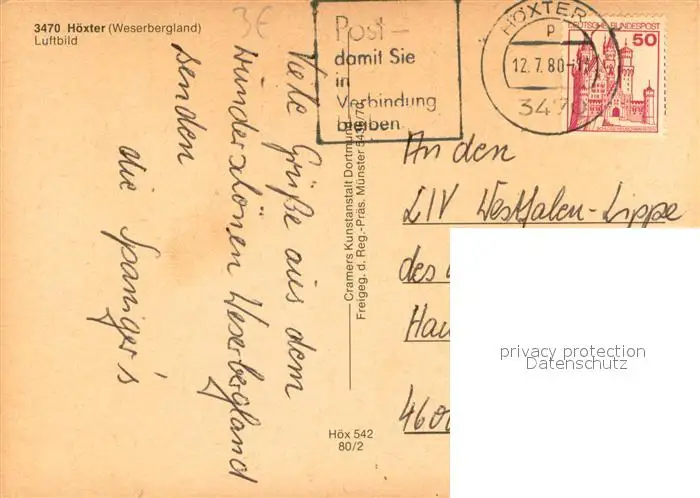 3470 Höxter (Weserbergland)
Luftbild
3€
Post –
damit Sie
in
Verbindung
bleiben
HÖXTER
P
12.7.80-
3470
DEUTSCHE BUNDESPOST
50
Viele Grüße aus dem
wunderschönen Weserbergland
senden
die Spaniger's
Cramers Kunstanstalt Dortmund
Freigeg. d. Reg.-Präs. Münster
Höx 542
80/2
An den
LIV Westfalen-Lippe
des
Hau
4600
privacy protection
Datenschutz